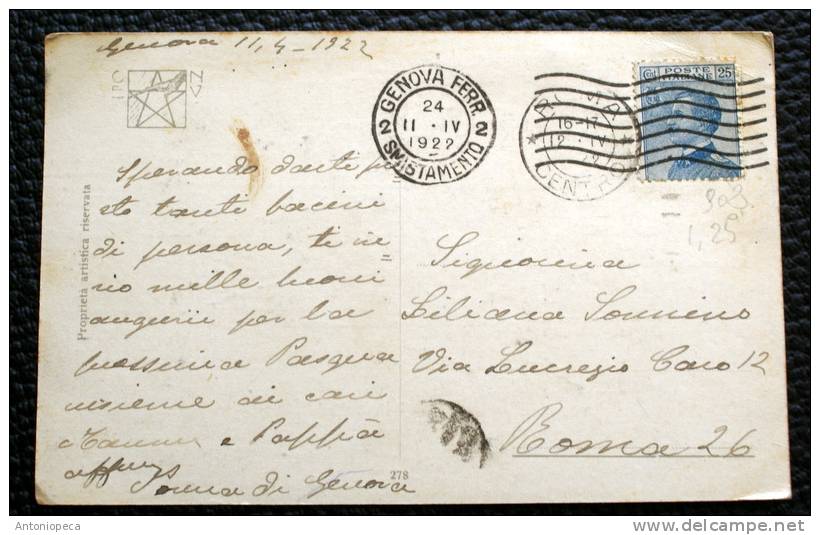 Genova 11,4-1922
GENOVA FERR.
24
11 · IV
1922
2 2
SMISTAMENTO
ROMA
16-17
12 · IV
22
CENTRO
POSTE
ITALIANE
25
303
1,25
Proprietà artistica riservata
Sperando darti pre
sto tanti bacini
di persona, ti in=
vio mille buoni
augurii per la
prossima Pasqua
insieme ai cari
Mammà e Pappà
affmys
Nonna di Genova
278
Signorina
Liliana Sonnino
Via Lucrezio Caro 12
Roma 26
Antoniopeca
www.delcampe.net